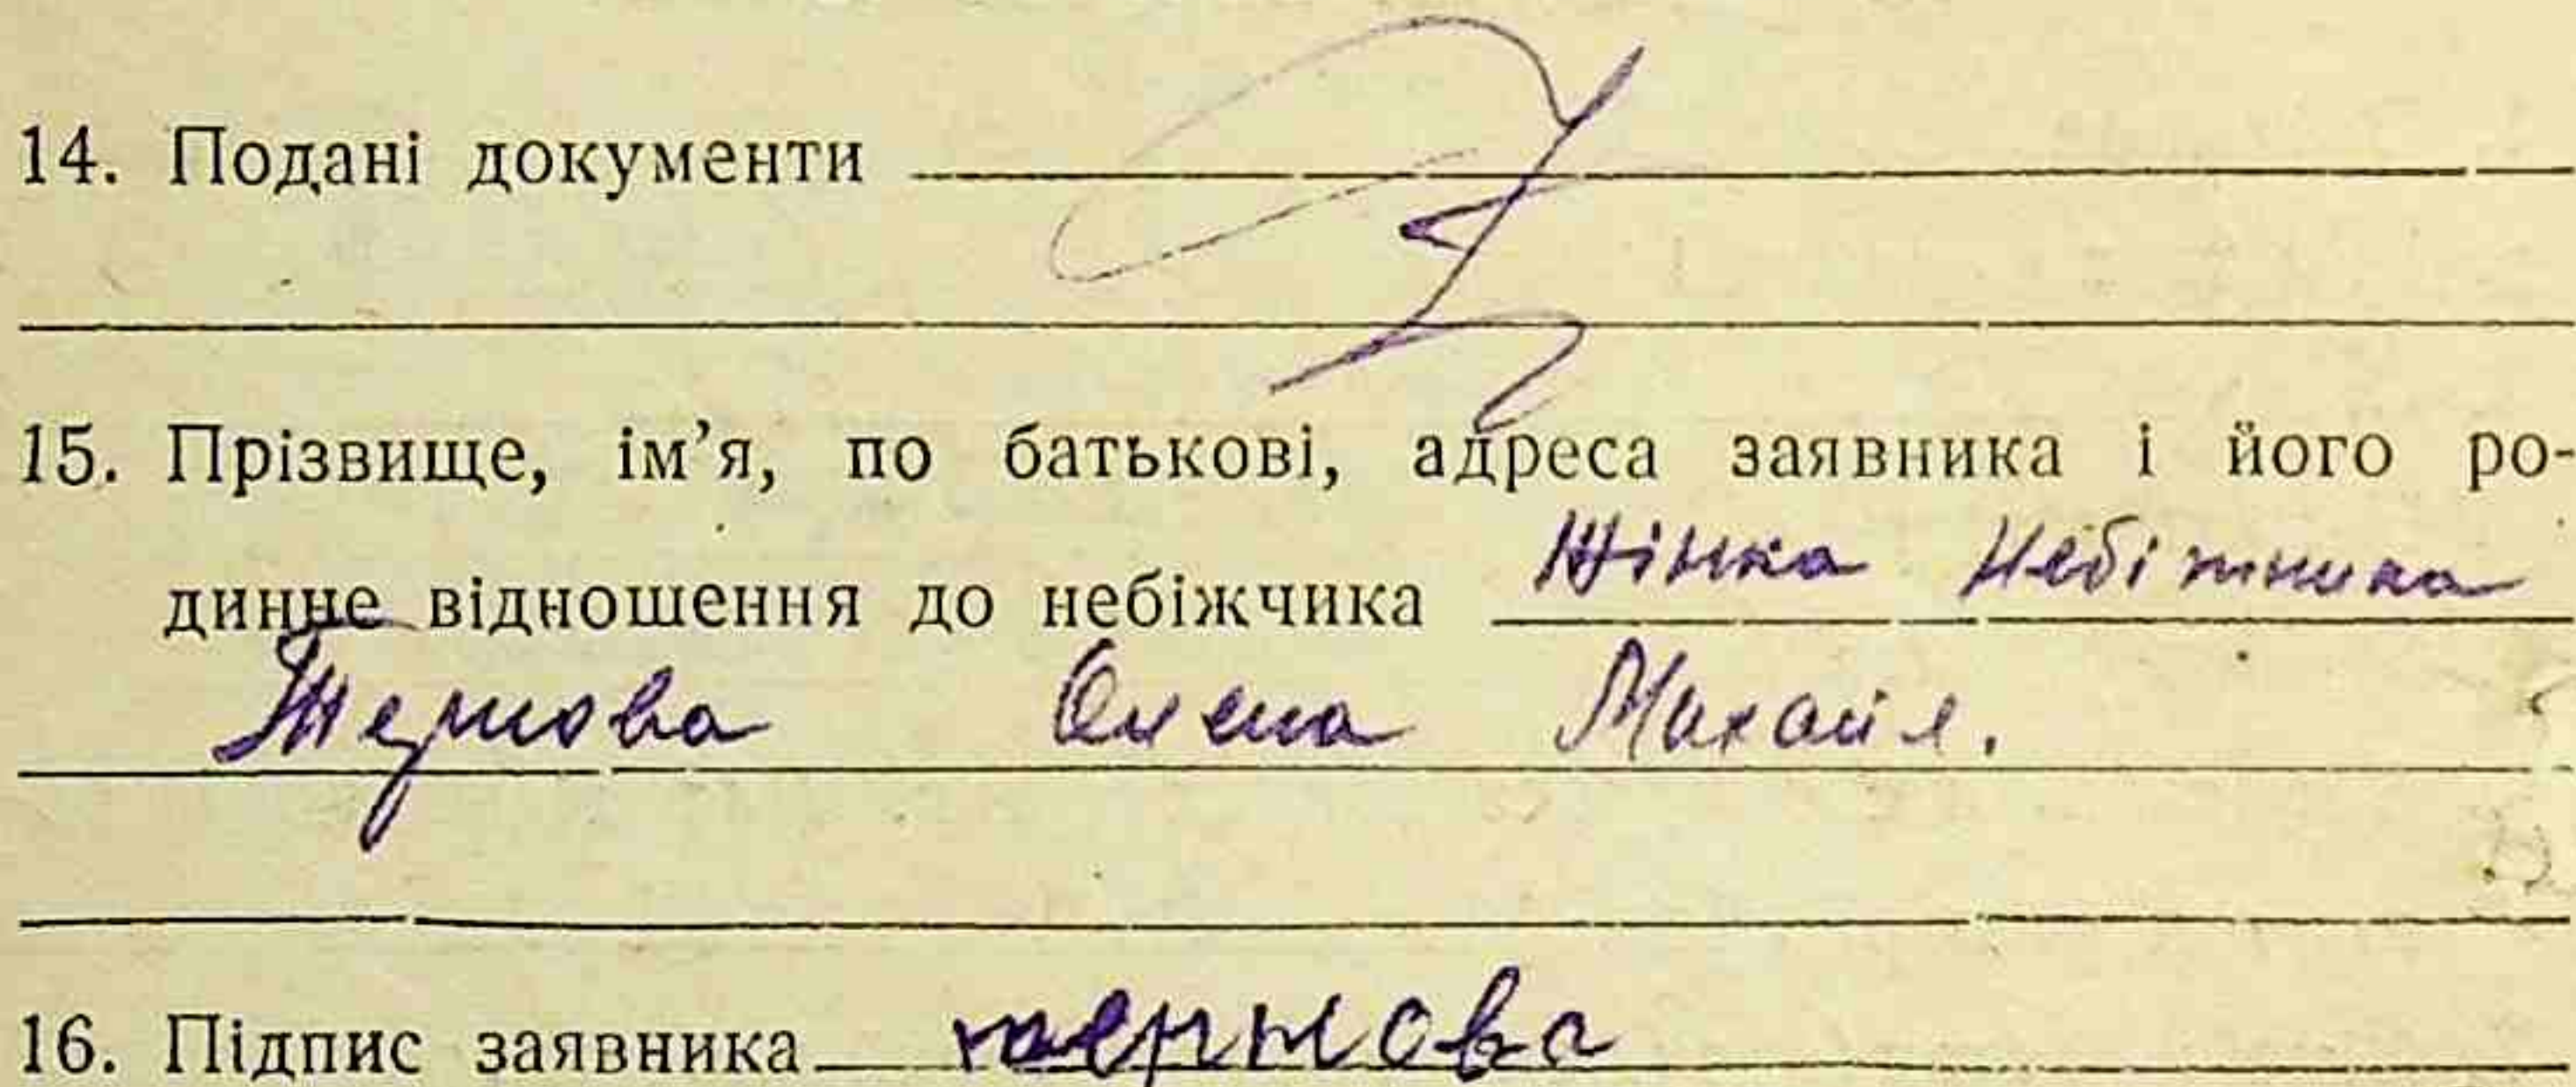 14. Подані документи
15. Прізвище, ім’я, по батькові, адреса заявника і його ро-
динне відношення до небіжчика Жінка Небіжчика
Тернова Олена Михайл.
16. Підпис заявника тернова